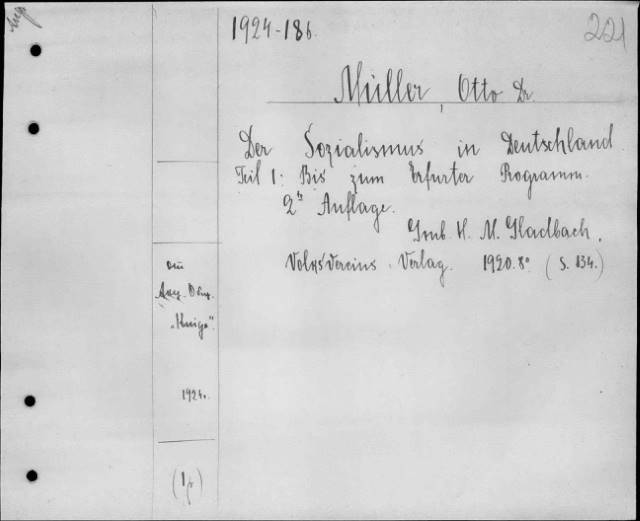 1924-186.
221
Müller, Otto Dr.
Der Sozialismus in Deutschland
Teil 1: Bis zum Erfurter Programm.
2te Auflage.
M. Gladbach,
Volksvereins-Verlag. 1920. 8° (S. 134.)
1924.